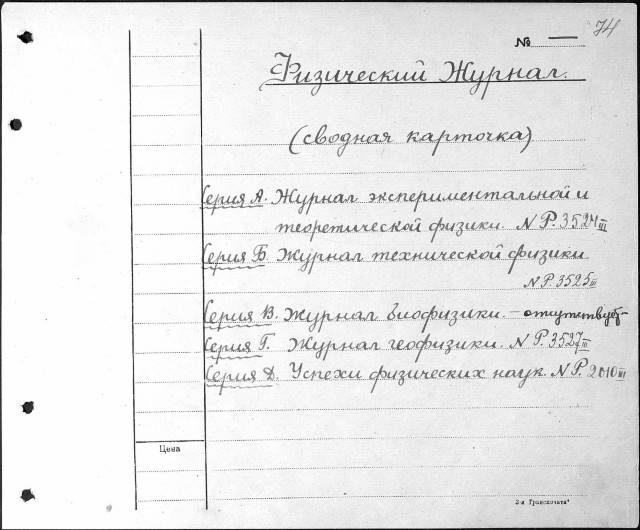 № — 74
Физический Журнал.
(сводная карточка)
Серия А. Журнал экспериментальной и
теоретической физики. N P. 3524 III
Серия Б. Журнал технической физики
N P. 3525 III
Серия В. Журнал биофизики. – отсутствует
Серия Г. Журнал геофизики. N P. 3527 III
Серия Д. Успехи физических наук. N P. 2010 III
Цена
3-я „Транспечати“